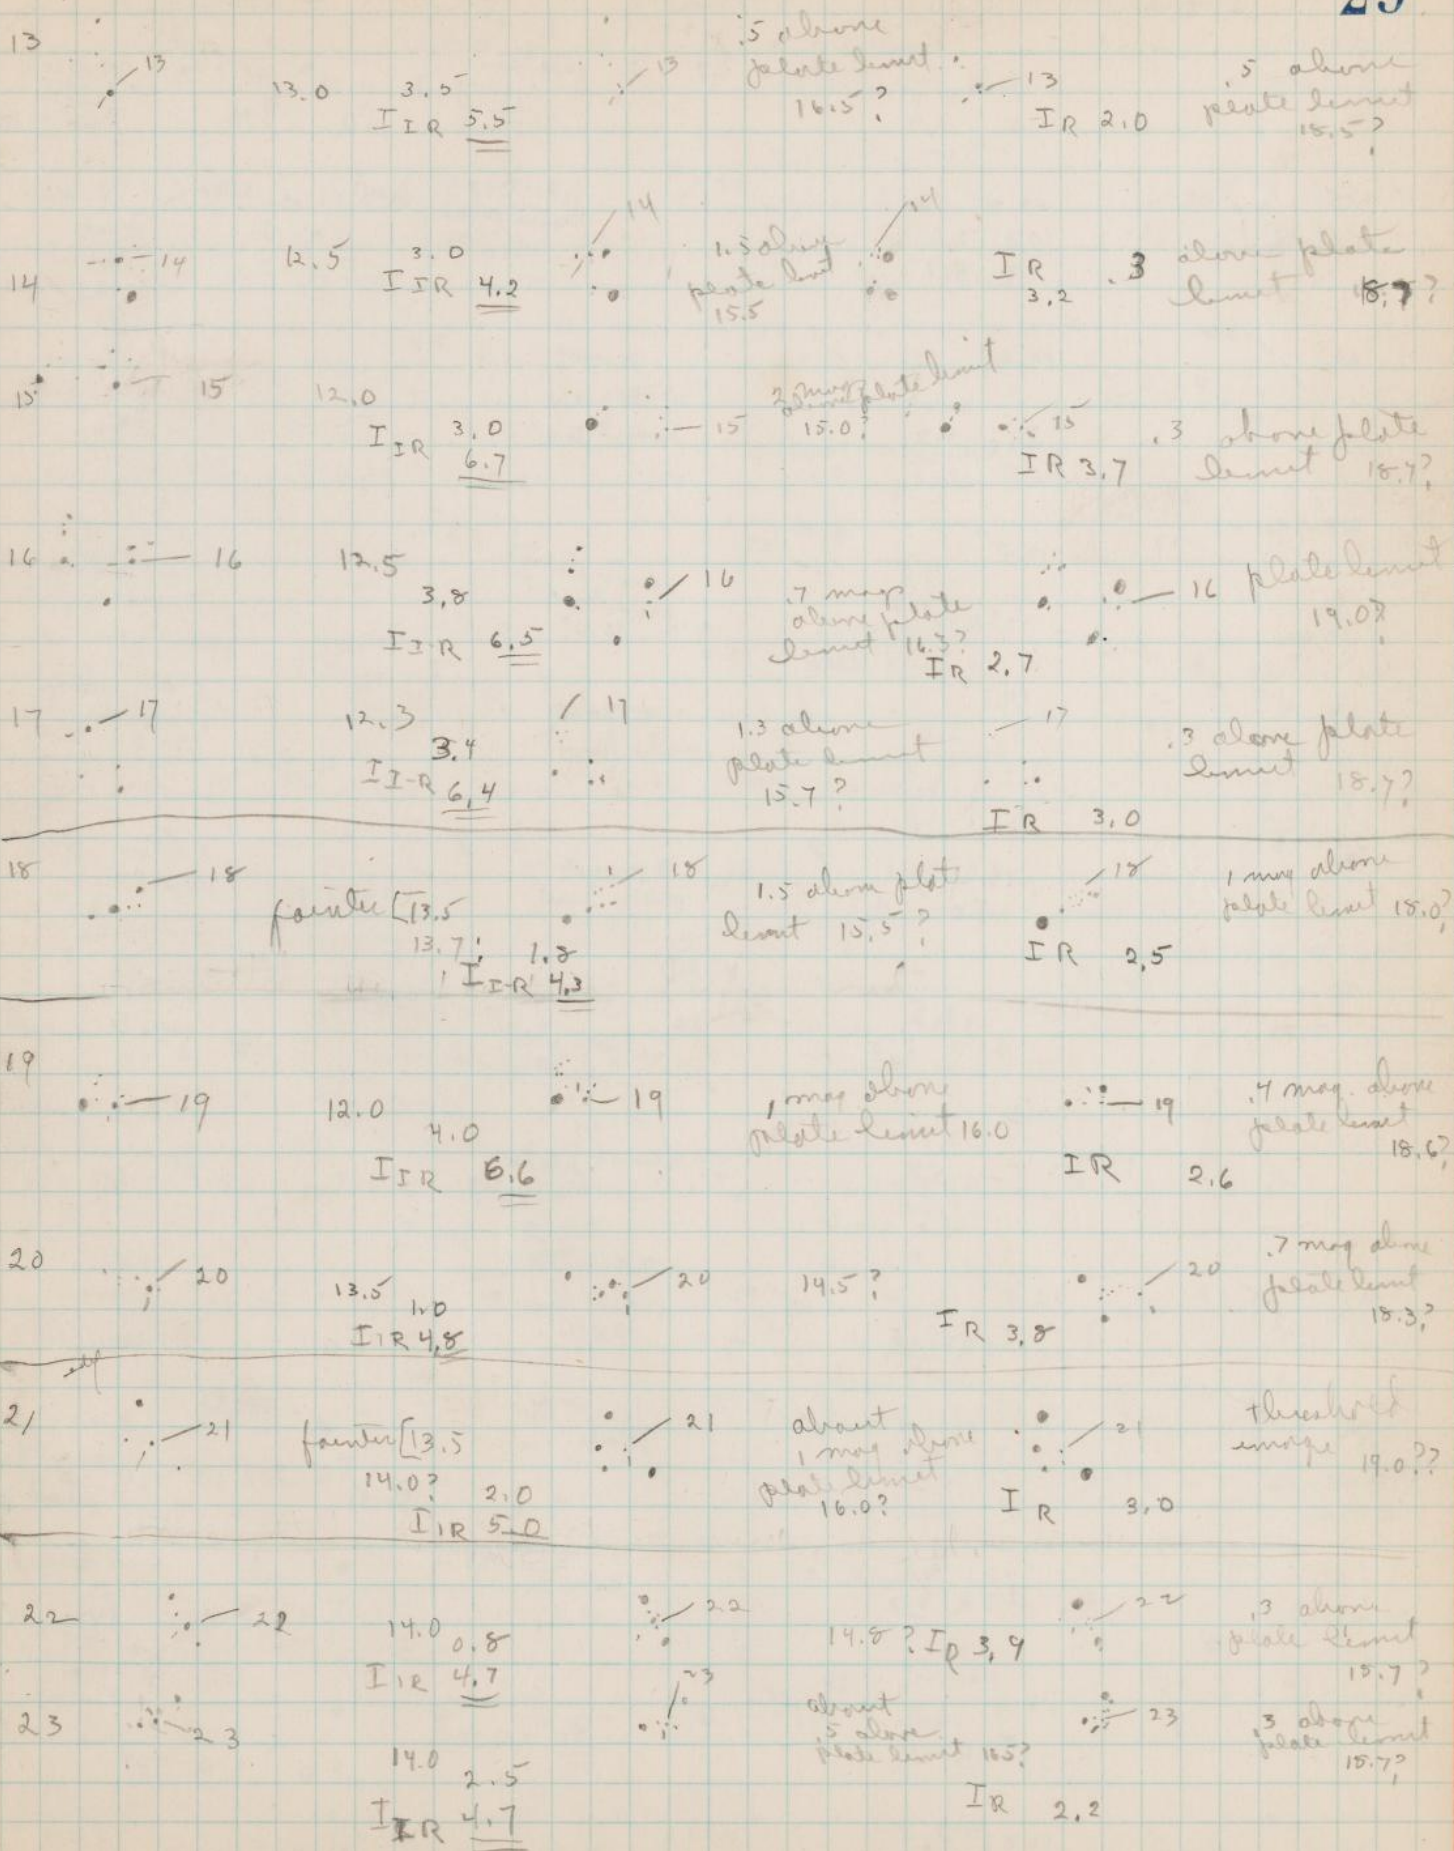 13
13
13.0
3.5
I IR 5.5
13
.5 above
plate limit
16.5?
13
IR 2.0
.5 above
plate limit
18.5?
14
14
12.5
3.0
I IR 4.2
14
1.5 above
plate limit
15.5
14
IR
3.2
.3 above plate
limit 18.7?
15
15
12.0
3.0
I IR
6.7
15
2 mag
above plate limit
15.0?
15
IR 3.7
.3 above plate
limit 18.7?
16
16
12.5
3.8
I I-R 6.5
16
.7 mag
above plate
limit 16.3?
IR 2.7
16
plate limit
19.0?
17
17
12.3
3.4
I I-R 6.4
17
1.3 above
plate limit
15.7?
17
IR 3.0
.3 above plate
limit 18.7?
18
18
fainter [13.5
13.7; 1.8
I I-R 4.3
18
1.5 above plat
limit 15.5?
18
IR 2.5
1 mag above
plate limit 18.0?
19
19
12.0
4.0
I IR 6.6
19
1 mag above
plate limit 16.0
19
IR 2.6
.4 mag. above
plate limit
18.6?
20
20
13.5
1.0
I IR 4.8
20
14.5?
IR 3.8
20
.7 mag above
plate limit
18.3?
21
21
fainter [13.5
14.0? 2.0
I IR 5.0
21
about
1 mag above
plate limit
16.0?
21
IR 3.0
threshold
image 19.0??
22
22
14.0
0.8
I IR 4.7
22
14.8? IR 3.9
22
.3 above
plate limit
18.7?
23
23
14.0
2.5
I IR 4.7
23
about
.5 above
plate limit 16.5?
IR 2.2
23
.3 above
plate limit
18.7?